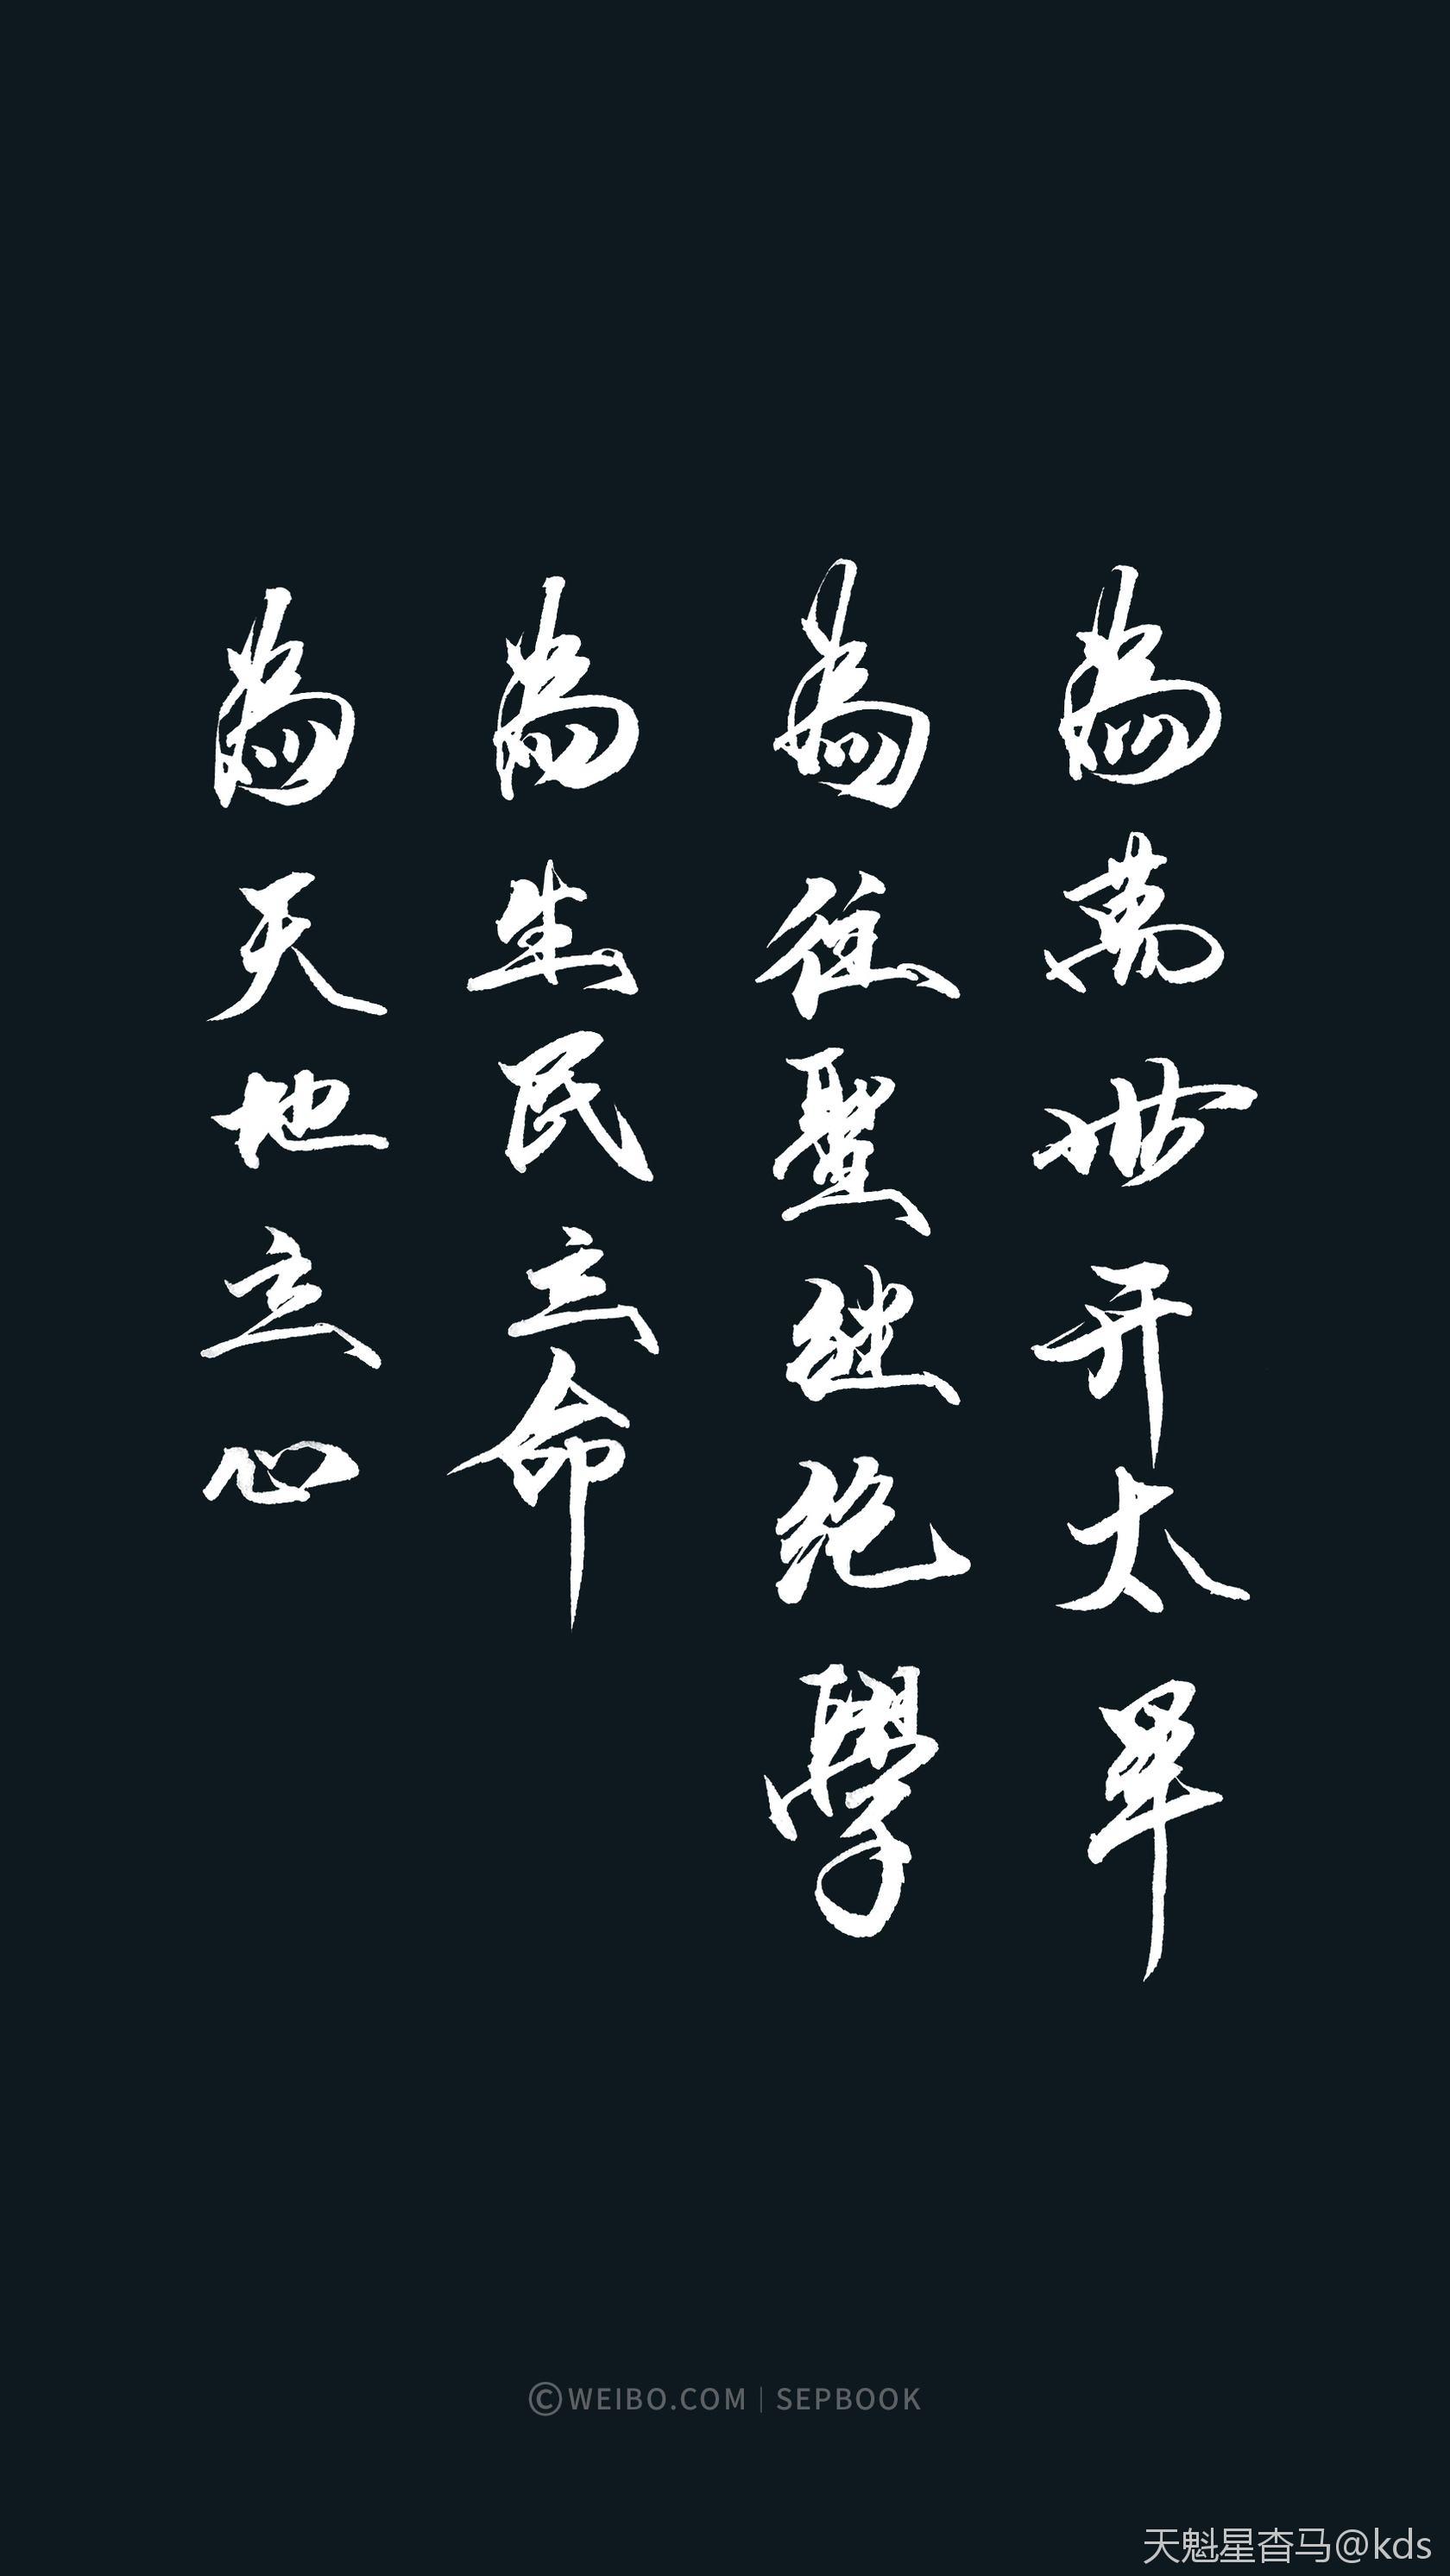 為天地立心
為生民立命
為往聖継絶學
為萬世开太
©WEIBO.COM | SEPBOOK
天魁星杳马@kds